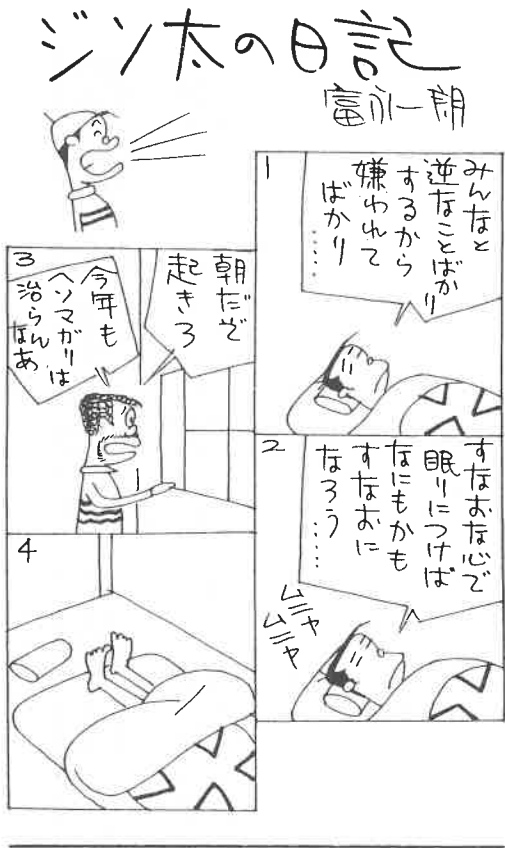 ジン太の日記
富永一朗
1
みんなと
逆なことばかり
するから
嫌われて
ばかり
……
2
すなおな心で
眠りにつけば
なにもかも
すなおに
なろう……
ムニャ
ムニャ
3
朝だぞ
起きろ
今年も
ヘソマガリは
治らん
なあ
4